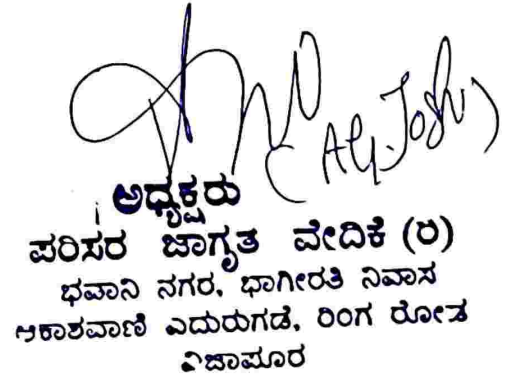 (AG. Joshi)
ಅಧ್ಯಕ್ಷರು
ಪರಿಸರ ಜಾಗೃತ ವೇದಿಕೆ (ರಿ)
ಭವಾನಿ ನಗರ, ಭಾಗೀರತಿ ನಿವಾಸ
ಆಕಾಶವಾಣಿ ಎದುರುಗಡೆ, ರಿಂಗ ರೋಡ
ವಿಜಾಪೂರ